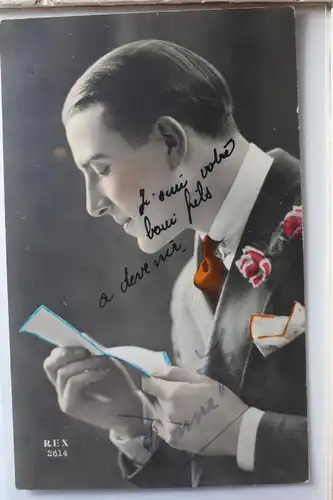 Je suis votre
beau fils
a devenir.
REX
2614